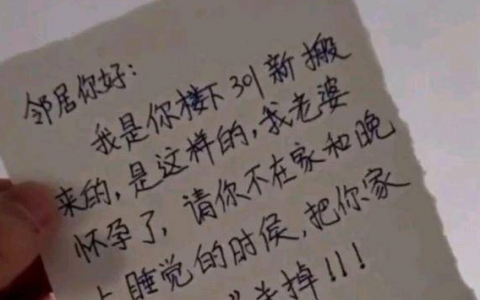 邻居你好:
我是你楼下301新搬
来的,是这样的,我老婆
怀孕了,请你不在家和晚
上睡觉的时侯,把你家
关掉!!!